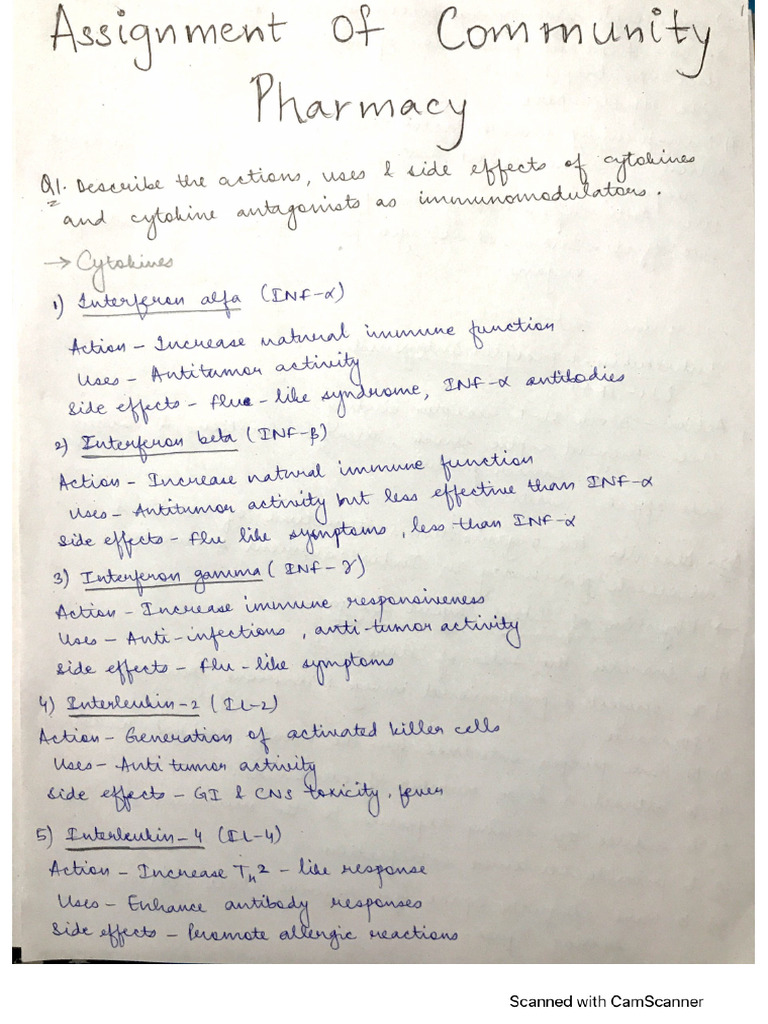 1
Assignment Of Community
Pharmacy
Q1. Describe the actions, uses & side effects of cytokines
and cytokine antagonists as immunomodulators.
→ Cytokines
1) Interferon alfa (INF-α)
Action - Increase natural immune function
Uses - Antitumor activity
Side effects - flue-like syndrome, INF-α antibodies
2) Interferon beta (INF-β)
Action - Increase natural immune function
Uses - Antitumor activity but less effective than INF-α
Side effects - flu like symptoms, less than INF-α
3) Interferon gamma (INF-γ)
Action - Increase immune responsiveness
Uses - Anti-infections, anti-tumor activity
Side effects - flu-like symptoms
4) Interleukin-2 (IL-2)
Action - Generation of activated killer cells
Uses - Anti tumor activity
Side effects - GI & CNS toxicity, fever
5) Interleukin-4 (IL-4)
Action - Increase TH2 - like response
Uses - Enhance antibody responses
Side effects - Promote allergic reactions
Scanned with CamScanner